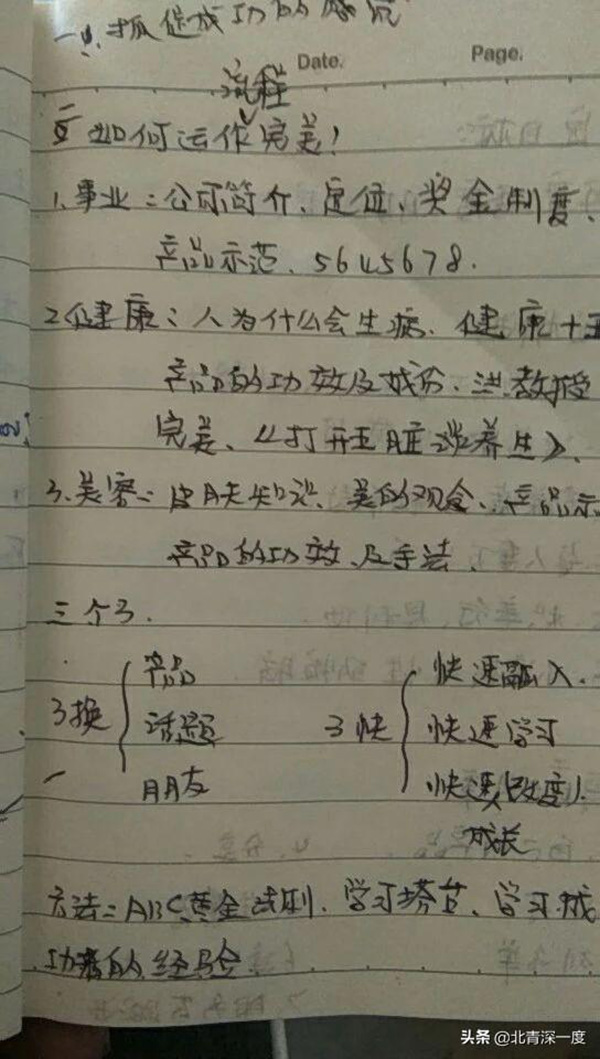 Date.
Page.
流程
如何运作完美！
1.事业：公司简介、定位、奖金制度、
产品示范、5645678.
2健康：人为什么会生病、健康十五
产品的功效及成份、洪教授
完美、《打开五脏谈养生》、
3.美容：皮肤知识、美的观念、产品示
产品的功效、及手法、
三个3.
产品
快速融入.
3换
话题
3快
快速学习
朋友
快速改变
成长
方法：ABC黄金法则、学习搭台、学习成
功者的经验
头条 @北青深一度